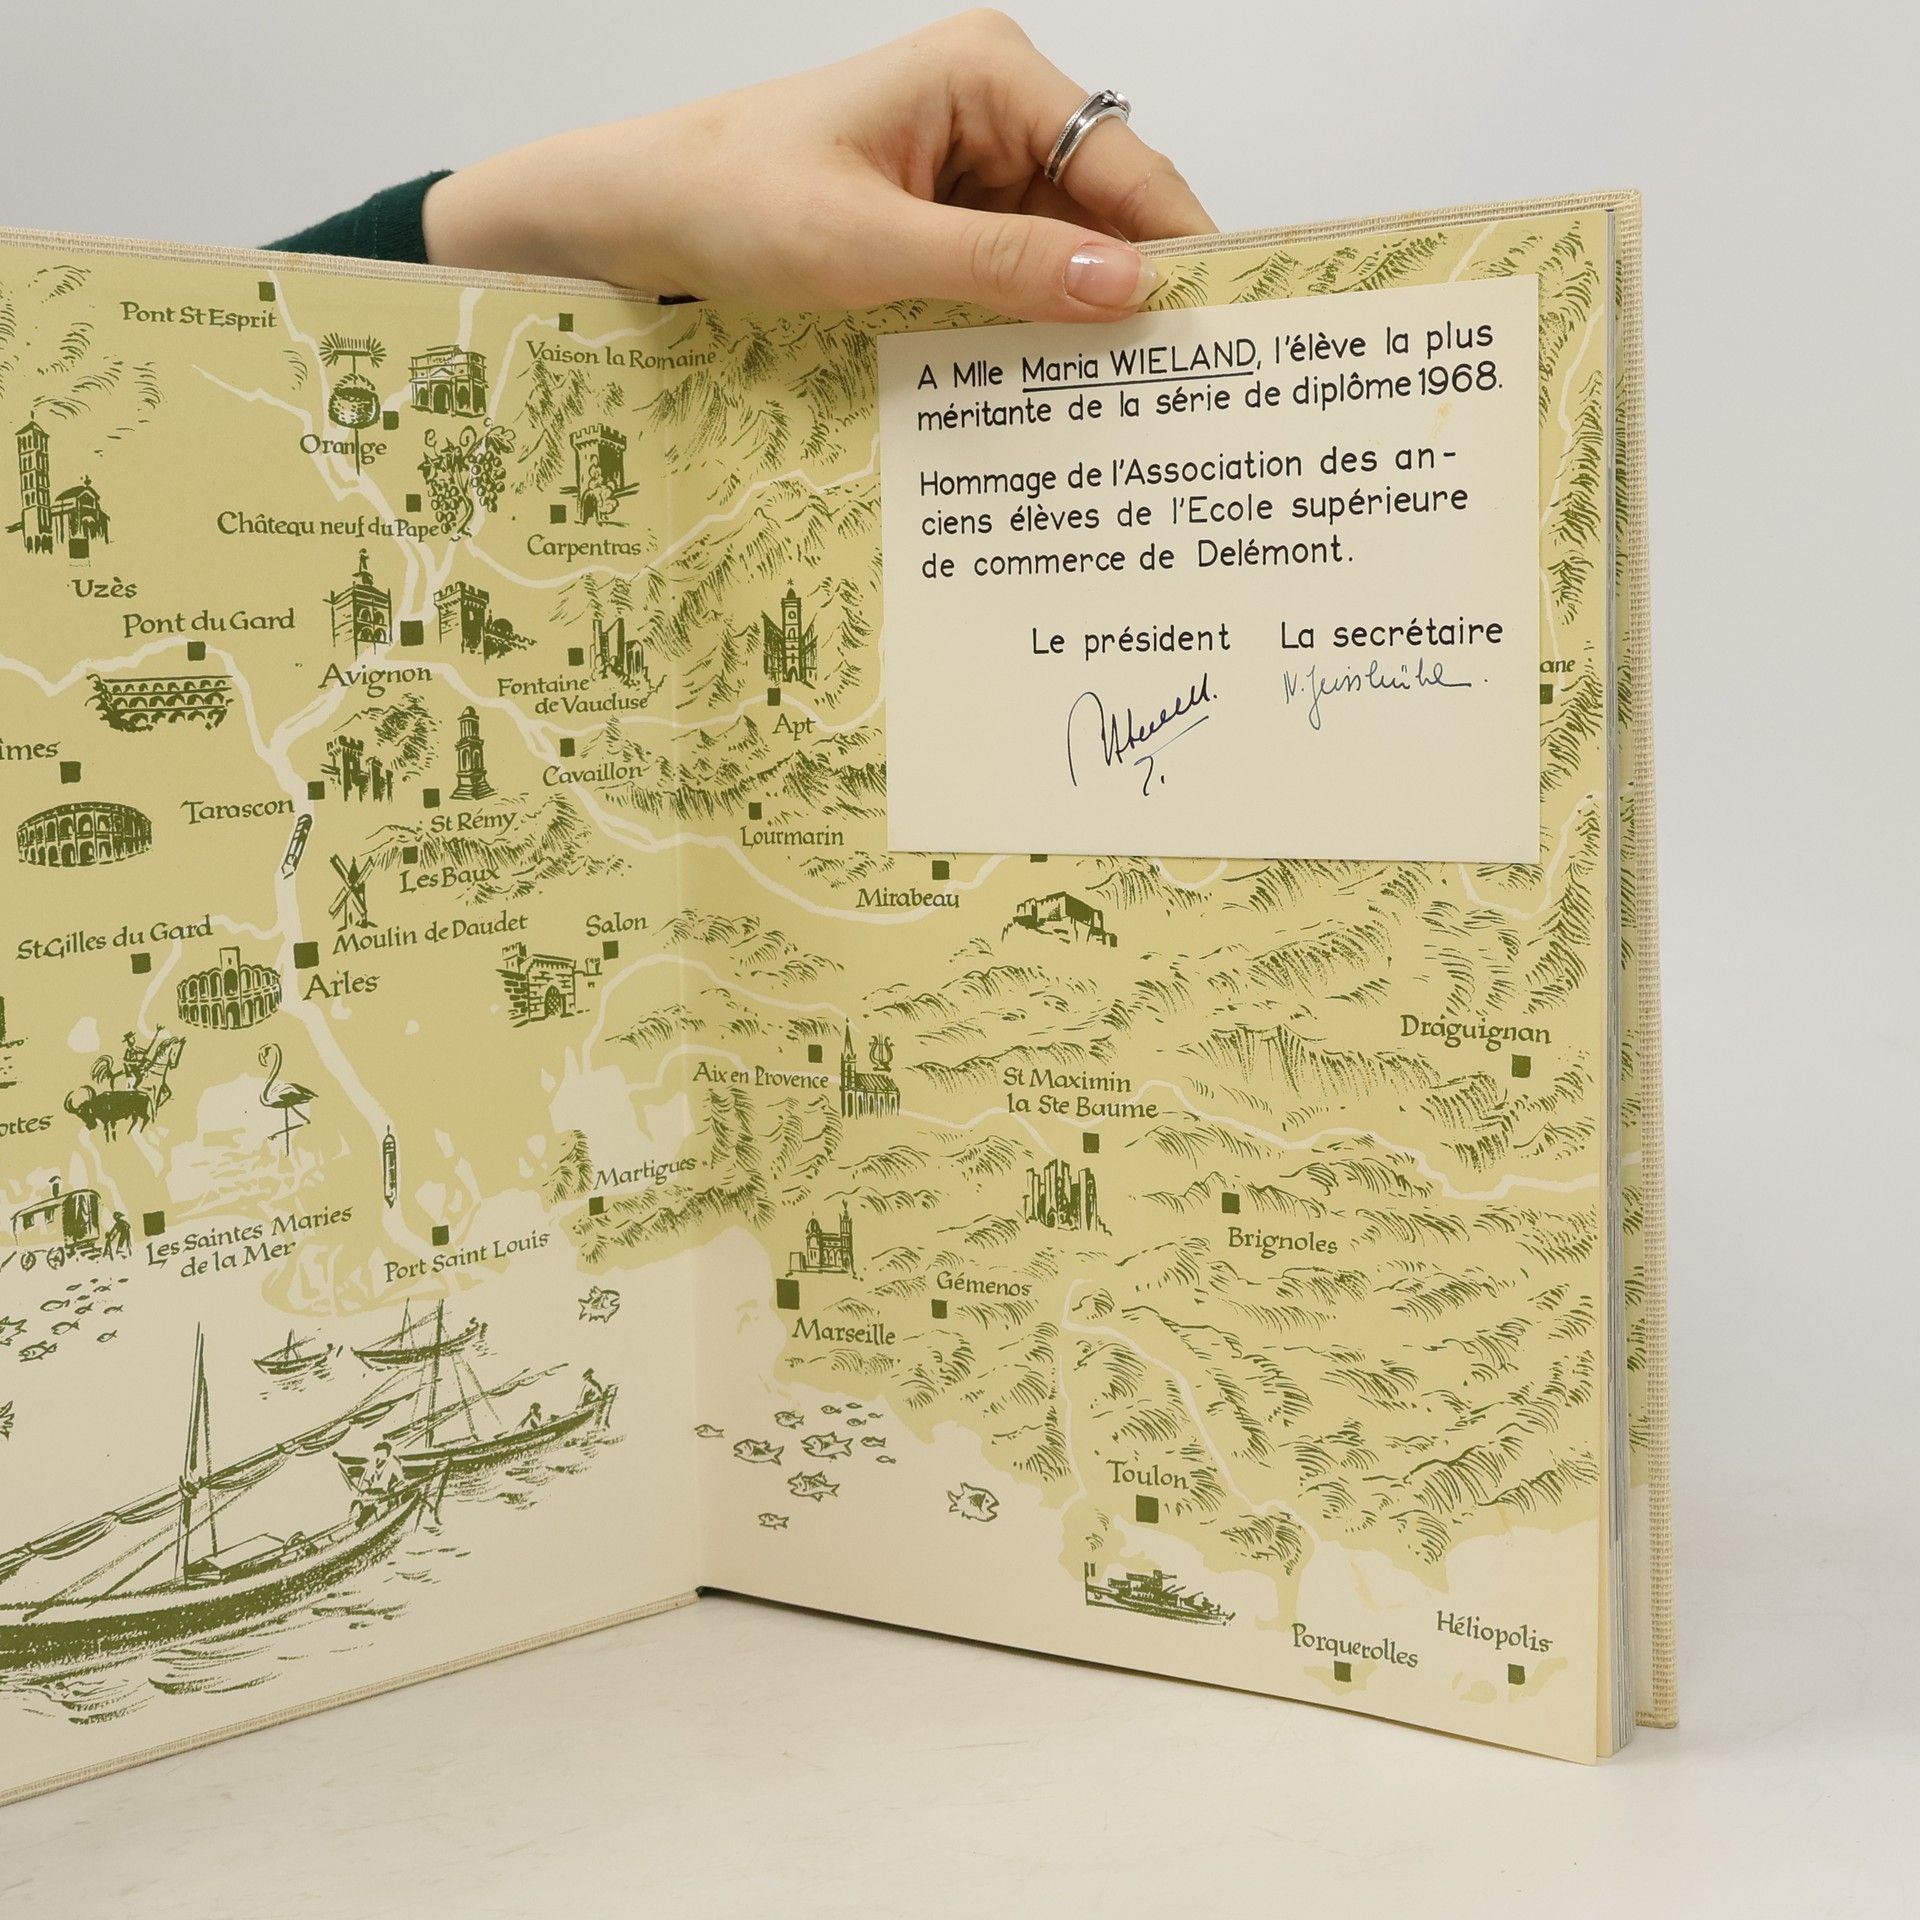 Pont St Esprit
Vaison la Romaine
Orange
Château neuf du Pape
Carpentras
Uzès
Pont du Gard
Avignon
Fontaine
de Vaucluse
Apt
îmes
Cavaillon
Tarascon
St Rémy
Lourmarin
Les Baux
Mirabeau
St Gilles du Gard
Moulin de Daudet
Salon
Arles
Draguignan
Aix en Provence
St Maximin
la Ste Baume
ottes
Martigues
Les Saintes Maries
de la Mer
Port Saint Louis
Brignoles
Gémenos
Marseille
Toulon
Porquerolles
Héliopolis
ane
A Mlle Maria WIELAND, l'élève la plus
méritante de la série de diplôme 1968.
Hommage de l'Association des an-
ciens élèves de l'Ecole supérieure
de commerce de Delémont.
Le président La secrétaire